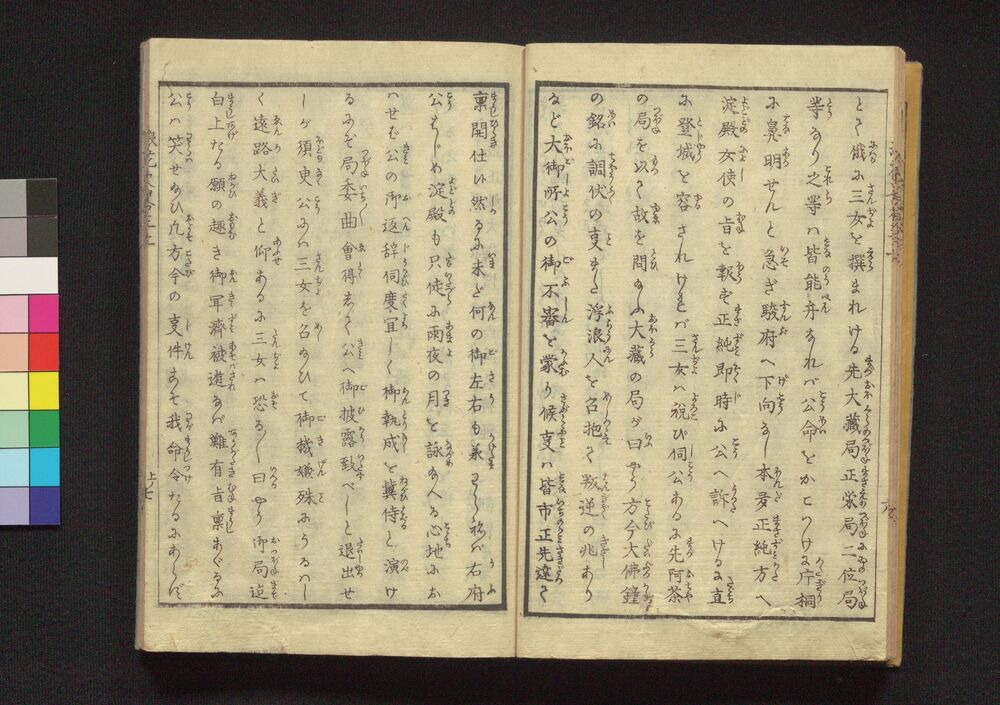 とき俄に三女を撰まれける先大藏局正栄局二位局
等なり之等ハ皆能弁なれバ公命をかこつけに片桐
に鼻明せんと急ぎ駿府へ下向なし本多正純方へ
淀殿女使の旨を報ず正純即時に公へ訴へけるに直
に登城を容されけれバ三女ハ悦び伺公あるに先阿茶
の局を以て故を問ふ大藏の局が曰やう方今大佛鐘
の銘に調伏の事また浮浪人を召抱て叛逆の兆あり
など大御所公の御不審を蒙り候事ハ皆市正先達て
禀開仕い然るに未だ何の御左右も承わらねバ右府
公はじめ淀殿も只徒に雨夜の月と詠め入る心地にお
ハせむ公の御返辞伺度宜しく御執成を冀侍と演け
るにぞ局委曲會得なして公へ御披露致べしと退出せ
しが須更公にハ三女を召あひて御機嫌殊にうるハし
く遠路大義と仰あるに三女ハ恐る〳〵曰やう御局迄
白上たる願の趣き御耳濟被遊なバ難有旨禀あぐるに
公ハ笑せあひ方今の事件まで我命令たるにあらず